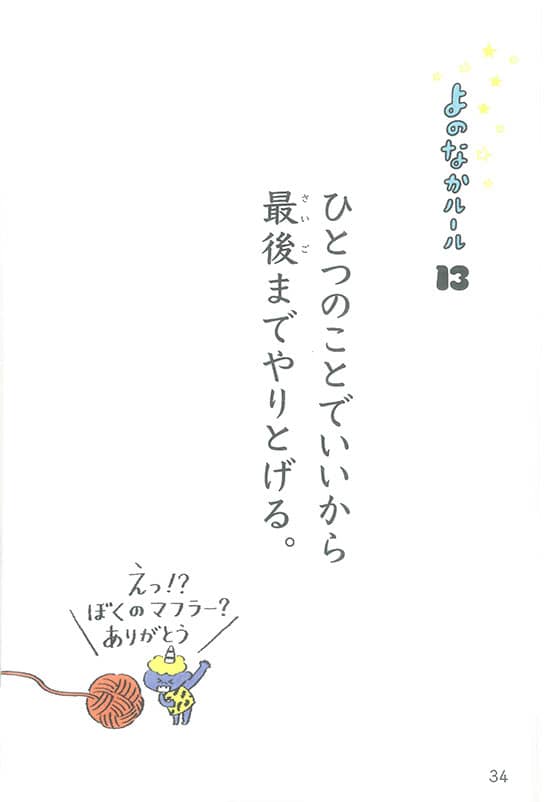 よのなかルール
13
ひとつのことでいいから
最後までやりとげる。
さいご
えっ!?
ぼくのマフラー?
ありがとう
34